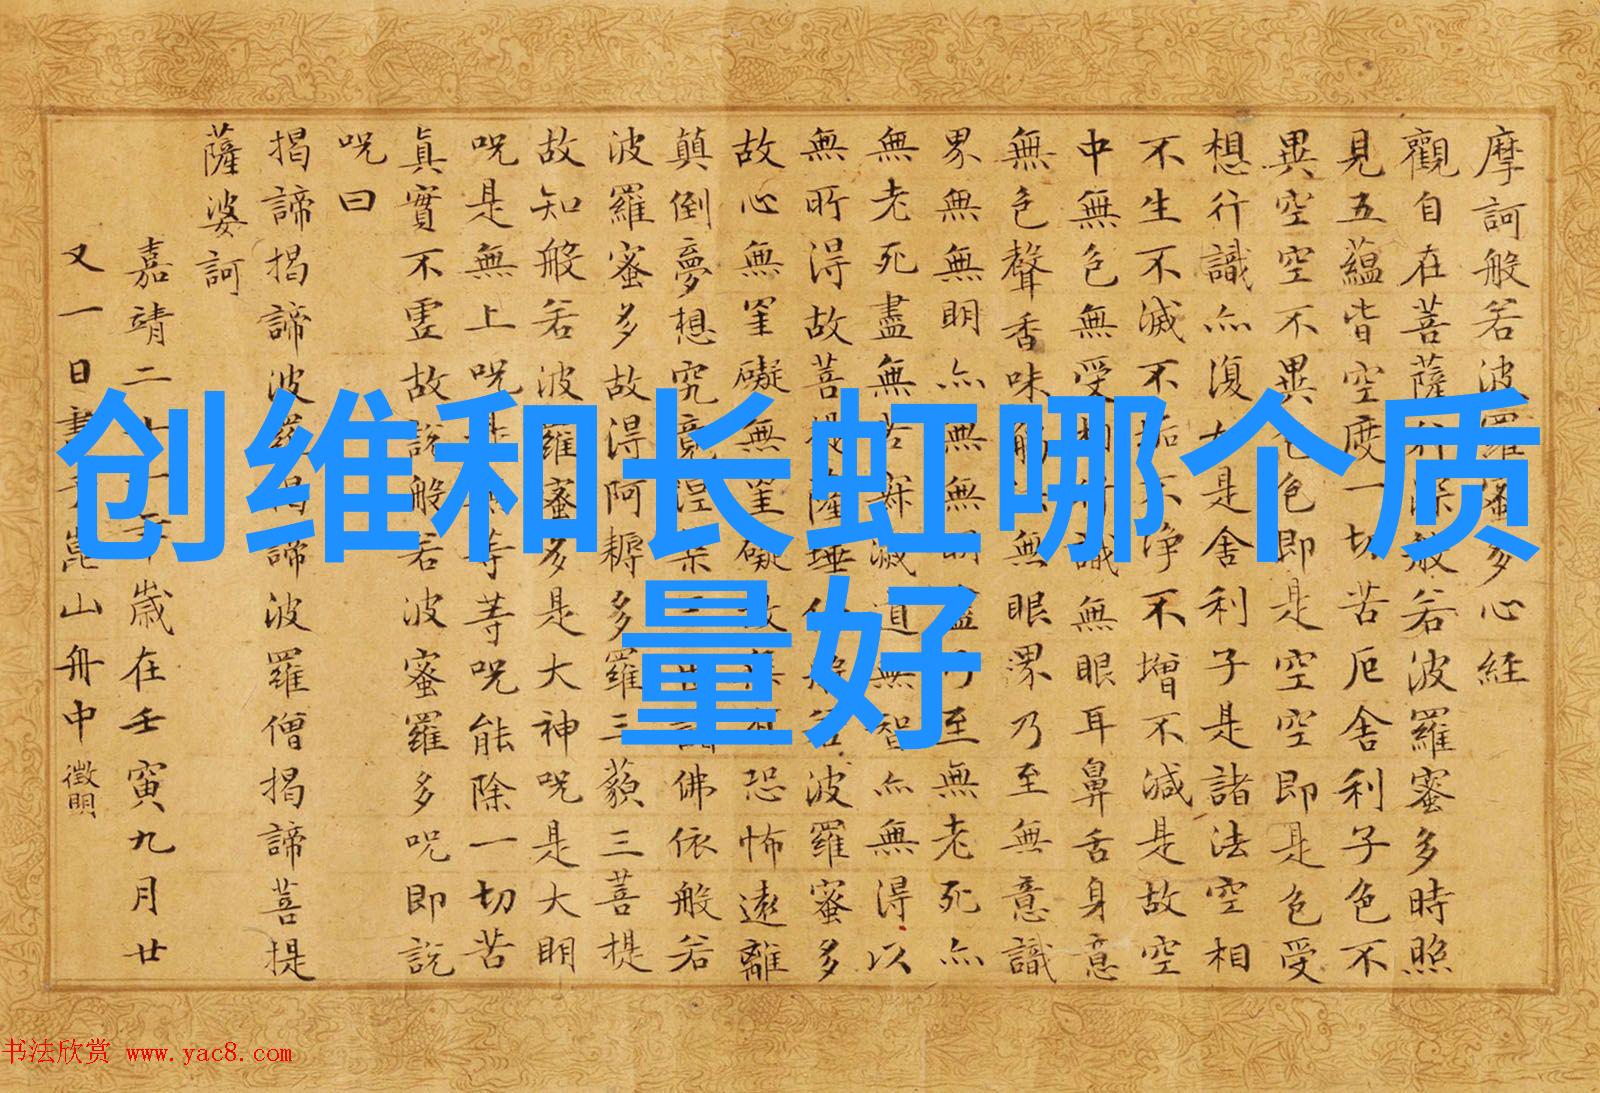 创维和长虹哪个质
量好
摩訶般若波羅蜜多心經
觀自在菩薩行深般若波羅蜜多時照
見五蘊皆空度一切苦厄舍利子色不
異空空不異色色即是空空即是色受
想行識亦復如是舍利子是諸法空相
不生不滅不垢不淨不增不減是故空
中無色無受想行識無眼耳鼻舌身意
無色聲香味觸法無眼界乃至無意識
界無無明亦無無明盡乃至無老死亦
無老死盡無苦寂滅道無智亦無得以
無所得故菩提薩埵依般若波羅蜜多
故心無罣礙無罣礙故無有恐怖遠離
顛倒夢想究竟涅槃三世諸佛依般若
波羅蜜多故得阿耨多羅三藐三菩提
故知般若波羅蜜多是大神呪是大明
呪是無上呪是無等等呪能除一切苦
真實不虛故說般若波羅蜜多呪即說
呪曰
揭諦揭諦波羅揭諦波羅僧揭諦菩提
薩婆訶
嘉靖二十一年歲在壬寅九月廿
又一日書于崑山舟中 徵明
书法欣赏 www.yac8.com